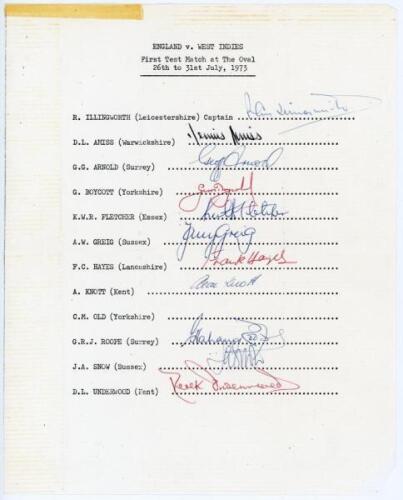 ENGLAND v. WEST INDIES
First Test Match at The Oval
26th to 31st July, 1973
R. ILLINGWORTH (Leicestershire) Captain Ray Illingworth
D.L. AMISS (Warwickshire) Dennis Amiss
G.G. ARNOLD (Surrey) Geoff Arnold
G. BOYCOTT (Yorkshire)
K.W.R. FLETCHER (Essex) Keith Fletcher
A.W. GREIG (Sussex) Tony Greig
F.C. HAYES (Lancashire) Frank Hayes
A. KNOTT (Kent) Alan Knott
C.M. OLD (Yorkshire)
G.R.J. ROOPE (Surrey) Graham Roope
J.A. SNOW (Sussex)
D.L. UNDERWOOD (Kent) Derek Underwood